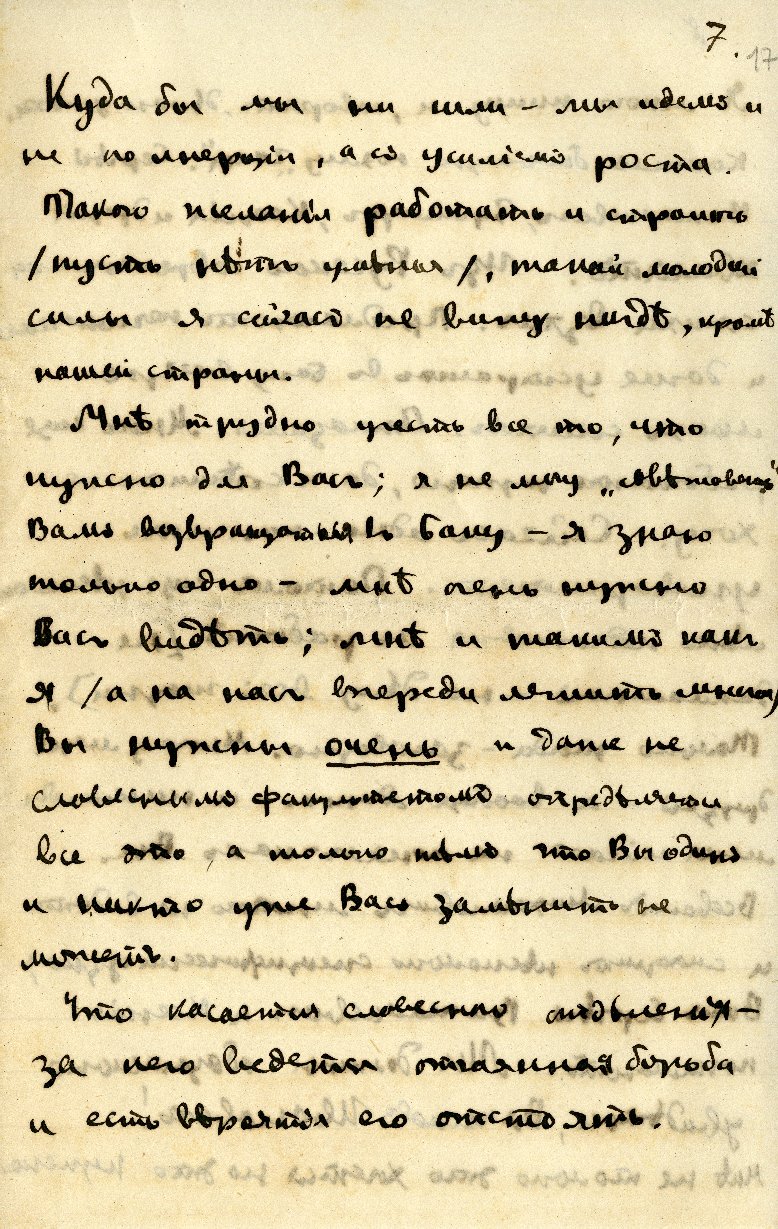 7.
17
Куда бы мы ни шли – мы идемъ и
не по инерціи, а съ усиліемъ роста.
Такого желанія работать и строить
/пусть нѣтъ умѣнья/, такой молодой
силы я сейчасъ не вижу нигдѣ, кромѣ
нашей страны.
Мнѣ трудно учесть все то, что
нужно для Васъ; я не могу „совѣтовать“
Вамъ возвращаться въ Баку – я знаю
только одно – мнѣ очень нужно
Васъ видѣть; мнѣ и такимъ какъ
я /а на насъ впереди ляжитъ многое/
Вы нужны очень и даже не
словеснымъ факультетомъ опредѣляется
все это, а только тѣмъ что Вы одинъ
и никто уже Васъ замѣнить не
можетъ.
Что касается словеснаго отдѣленія –
за него ведется отчаянная борьба
и есть вѣроятія его отстоять.